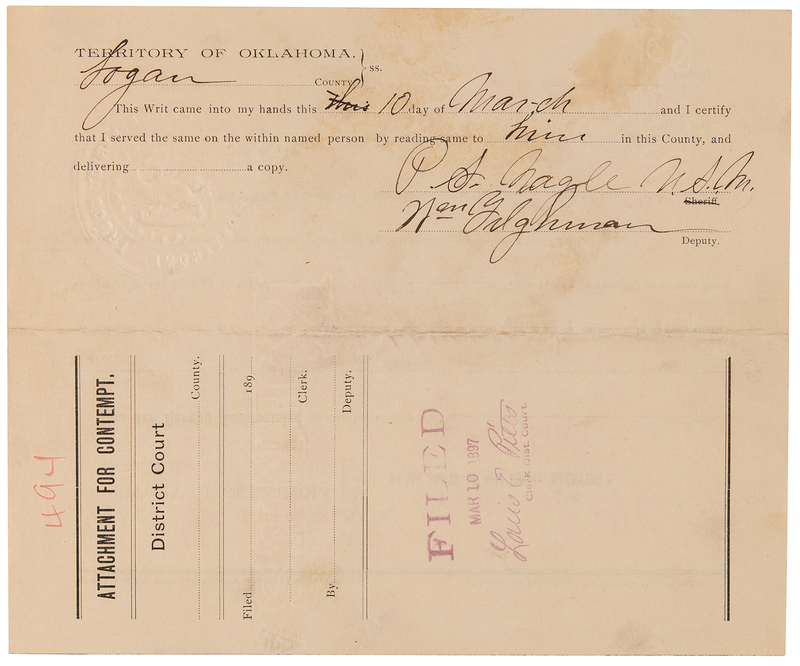 TERRITORY OF OKLAHOMA,
Logan COUNTY } ss.
This Writ came into my hands this This 10 day of March and I certify
that I served the same on the within named person by reading same to him in this County, and
delivering a copy.
P. S. Nagle U.S.M.
Sheriff.
Wm Tilghman
Deputy.
494
ATTACHMENT FOR CONTEMPT.
District Court
County.
Filed 189
Clerk.
By Deputy.
FILED
MAR 10 1897
Louis E. Pitts
Clerk Dist. Court.